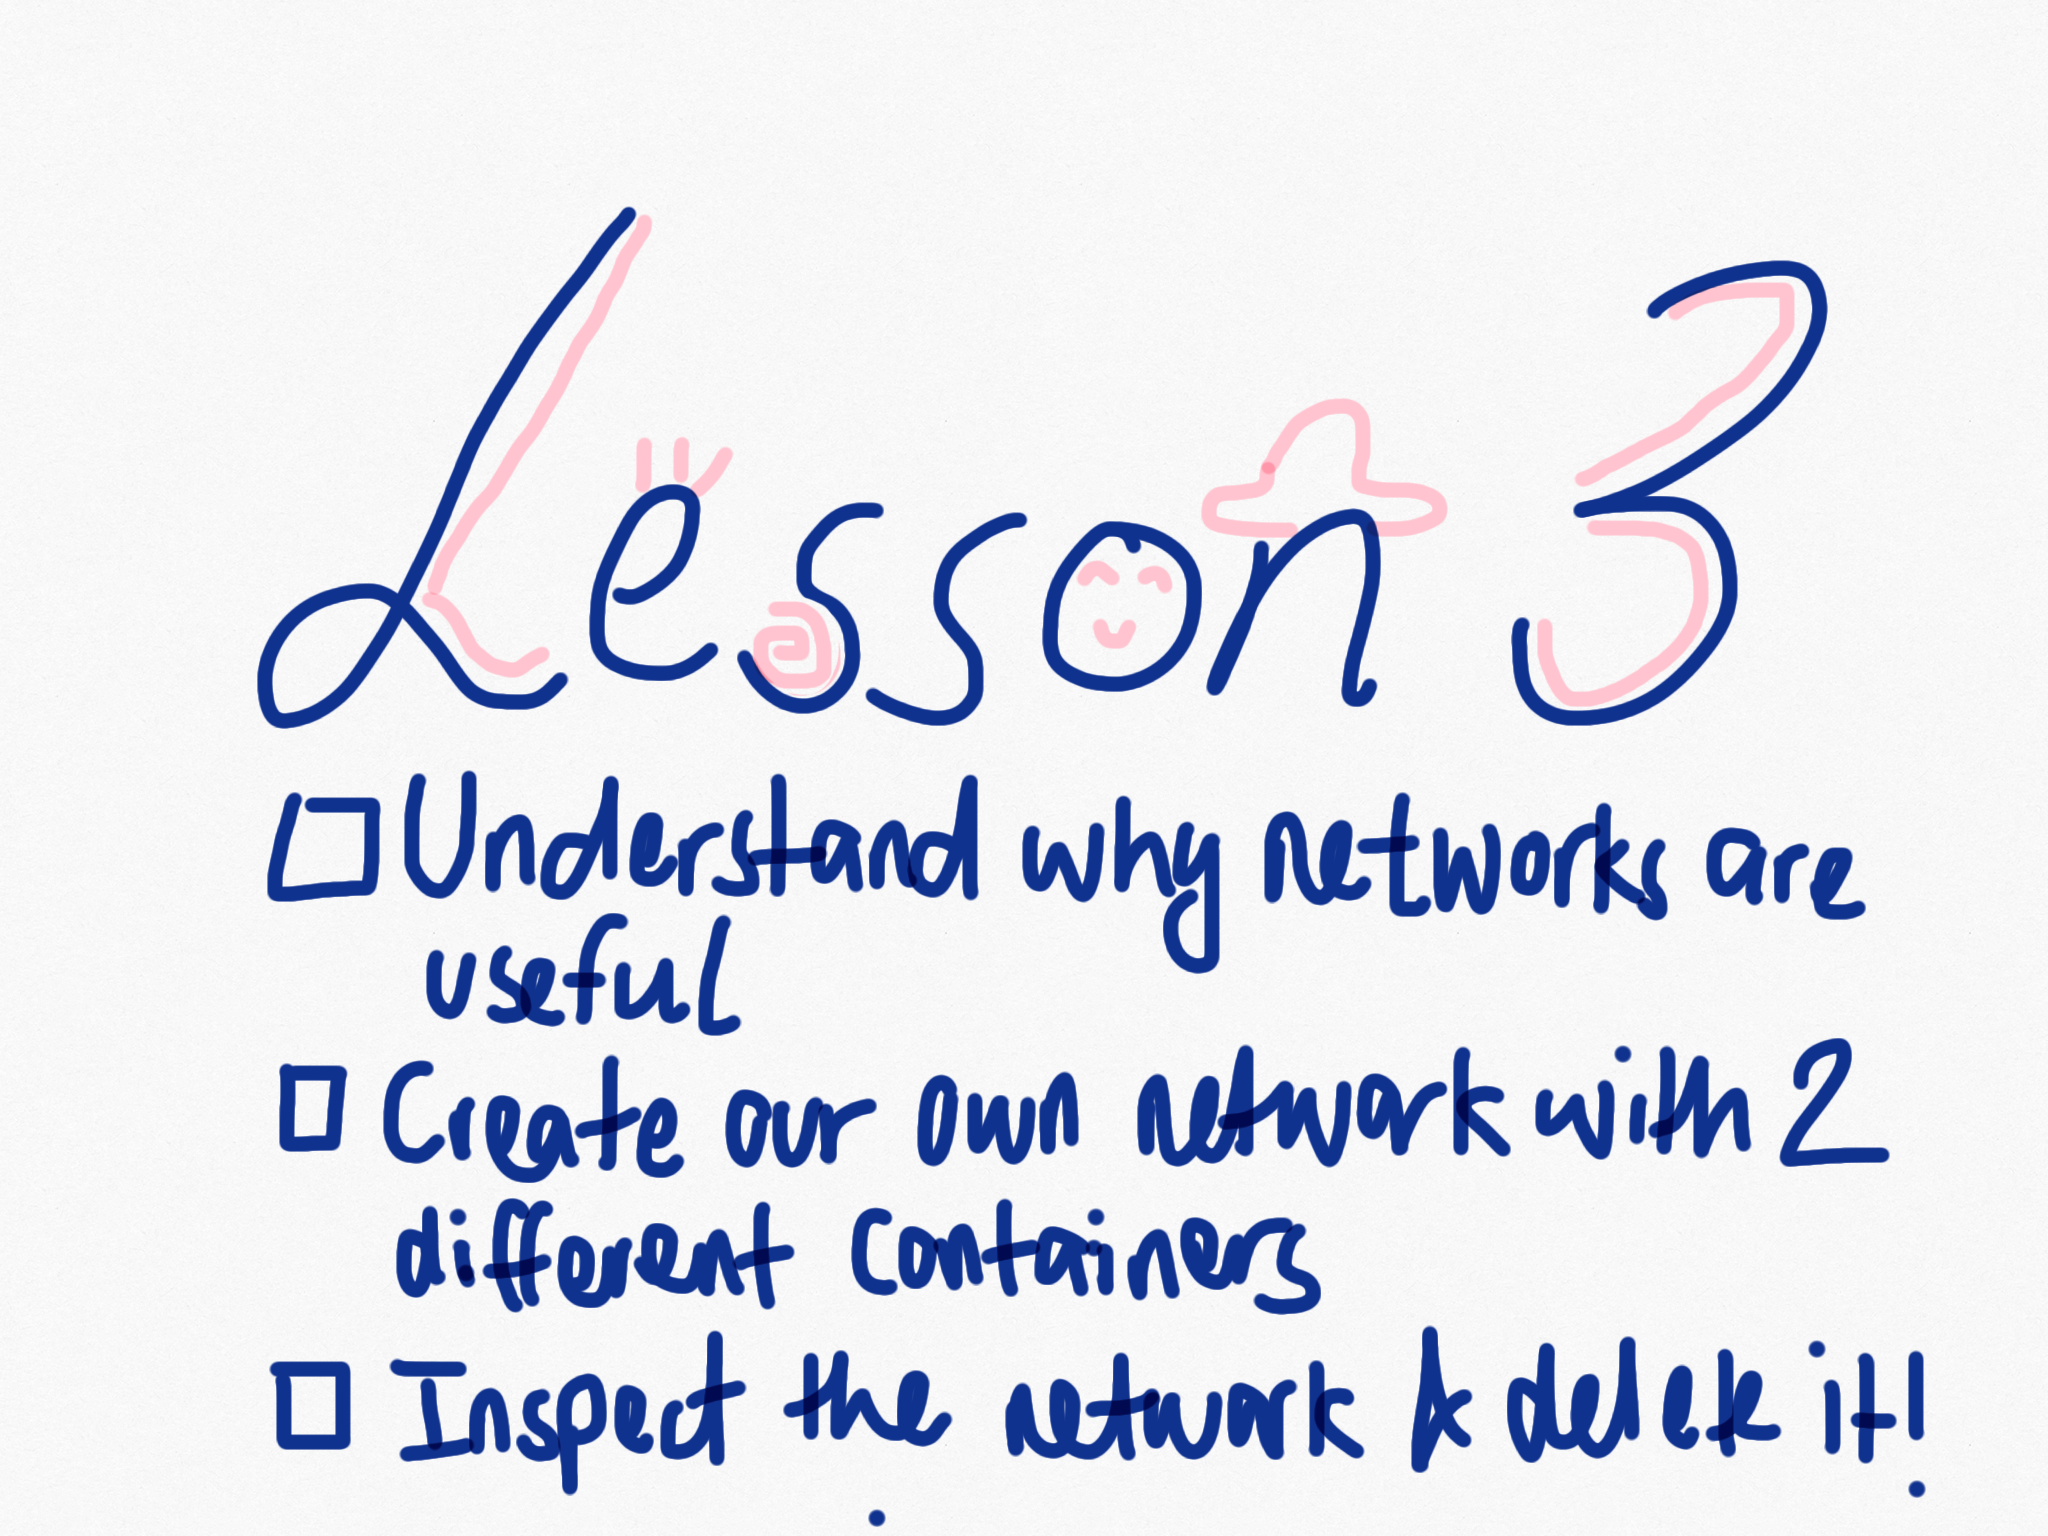 Lesson 3
Understand why networks are
useful
Create our own network with 2
different containers
Inspect the network & delete it!